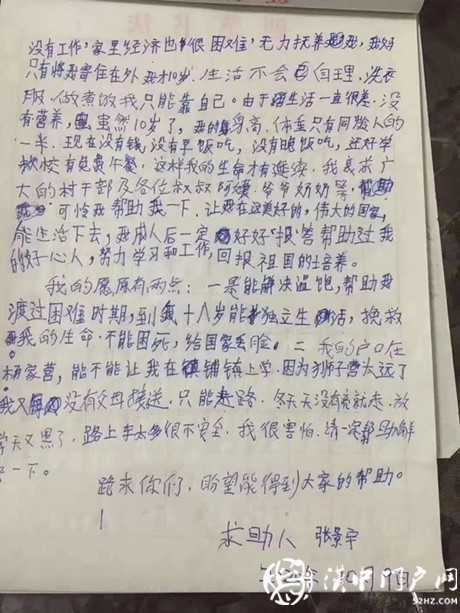 没有工作,家里经济也很困难,无力抚养我,我妈
只有将我寄住在外,我才10岁.生活不会自理,洗衣
服.做煮饭我只能靠自己。由于生活一直很差.没
有营养,虽然10岁了,我的身高.体重只有同龄人的
一半.现在没有钱,没有早饭吃,没有晚饭吃,还好学
校有免费午餐,这样我的生命才有延续.我恳求广
大的村干部及各位叔叔阿姨,爷爷奶奶等
可怜我帮助我一下.让我在这美好的,伟大的国家,
能生活下去,我成人后一定好好报答帮助过我
的好心人,努力学习和工作,回报祖国的培养。
我的愿原有两点:一是能解决温饱,帮助我
渡过困难时期,到我十八岁能独立生活,挽救
我的生命.不能困死,给国家丢脸.二我的户口在
杨家营,能不能让我在铺镇上学.因为狮子营太远了
我又没有父母接送.只能走路.冬天天没有亮就走.放
学天又黑了.路上车太多很不安全.我很害怕.请一定帮助解
一下。
跪求你们,盼望能得到大家的帮助。
求助人 张景宇
汉中门户网
92HZ.COM